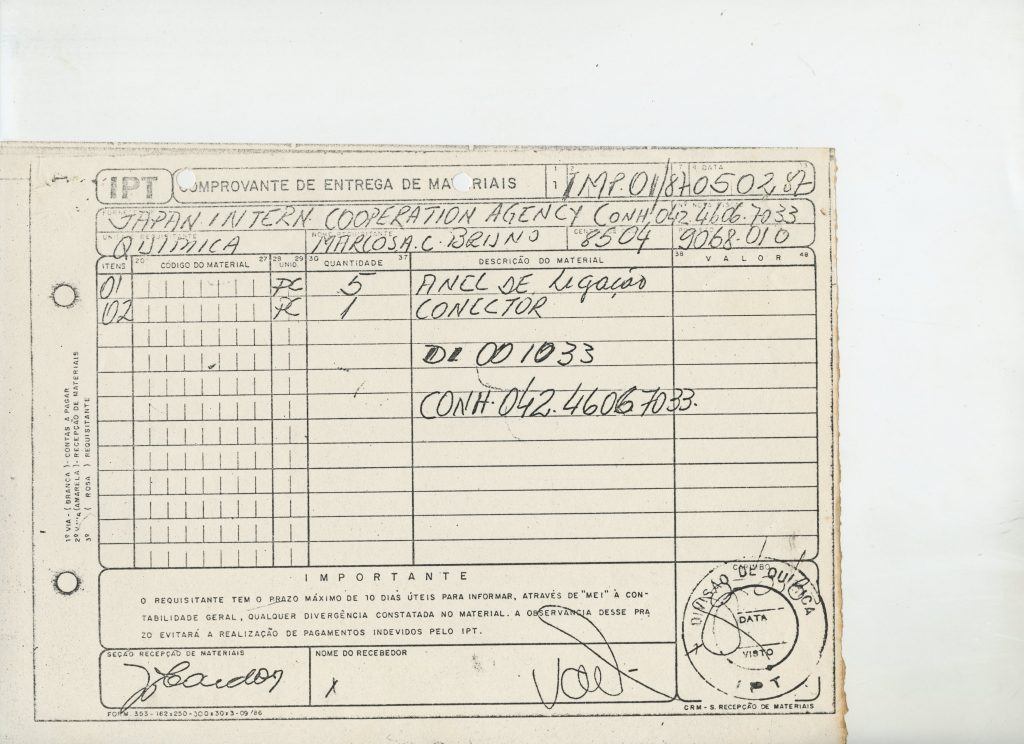 IPT COMPROVANTE DE ENTREGA DE MATERIAIS IMP.01/87 DATA 050287
JAPAN INTERN. COOPERATION AGENCY CONH 042.4606.7033
QUIMICA MARCOS A.C. BRUNO 8504 9068.010
ITENS 20 CÓDIGO DO MATERIAL 27 28 UNID. 29 30 QUANTIDADE 37 DESCRIÇÃO DO MATERIAL 38 VALOR 48
01 PC 5 ANEL DE LIGAÇÃO
02 PC 1 CONECTOR
DI 001033
CONH. 042.46067033.
1º VIA - (BRANCA) - CONTAS A PAGAR
2º VIA (AMARELA) - RECEPÇÃO DE MATERIAIS
3º ( ROSA ) REQUISITANTE
IMPORTANTE
O REQUISITANTE TEM O PRAZO MÁXIMO DE 10 DIAS ÚTEIS PARA INFORMAR, ATRAVÉS DE "MEI" À CON-
TABILIDADE GERAL, QUALQUER DIVERGÊNCIA CONSTATADA NO MATERIAL. A OBSERVÂNCIA DESSE PRA
ZO EVITARÁ A REALIZAÇÃO DE PAGAMENTOS INDEVIDOS PELO IPT.
CARIMBO
DIVISÃO DE QUÍMICA
DATA
VISTO
IPT
SEÇÃO RECEPÇÃO DE MATERIAIS NOME DO RECEBEDOR
X
FORM. 353-162x250-300x30x3-09/86 CRM - S. RECEPÇÃO DE MATERIAIS